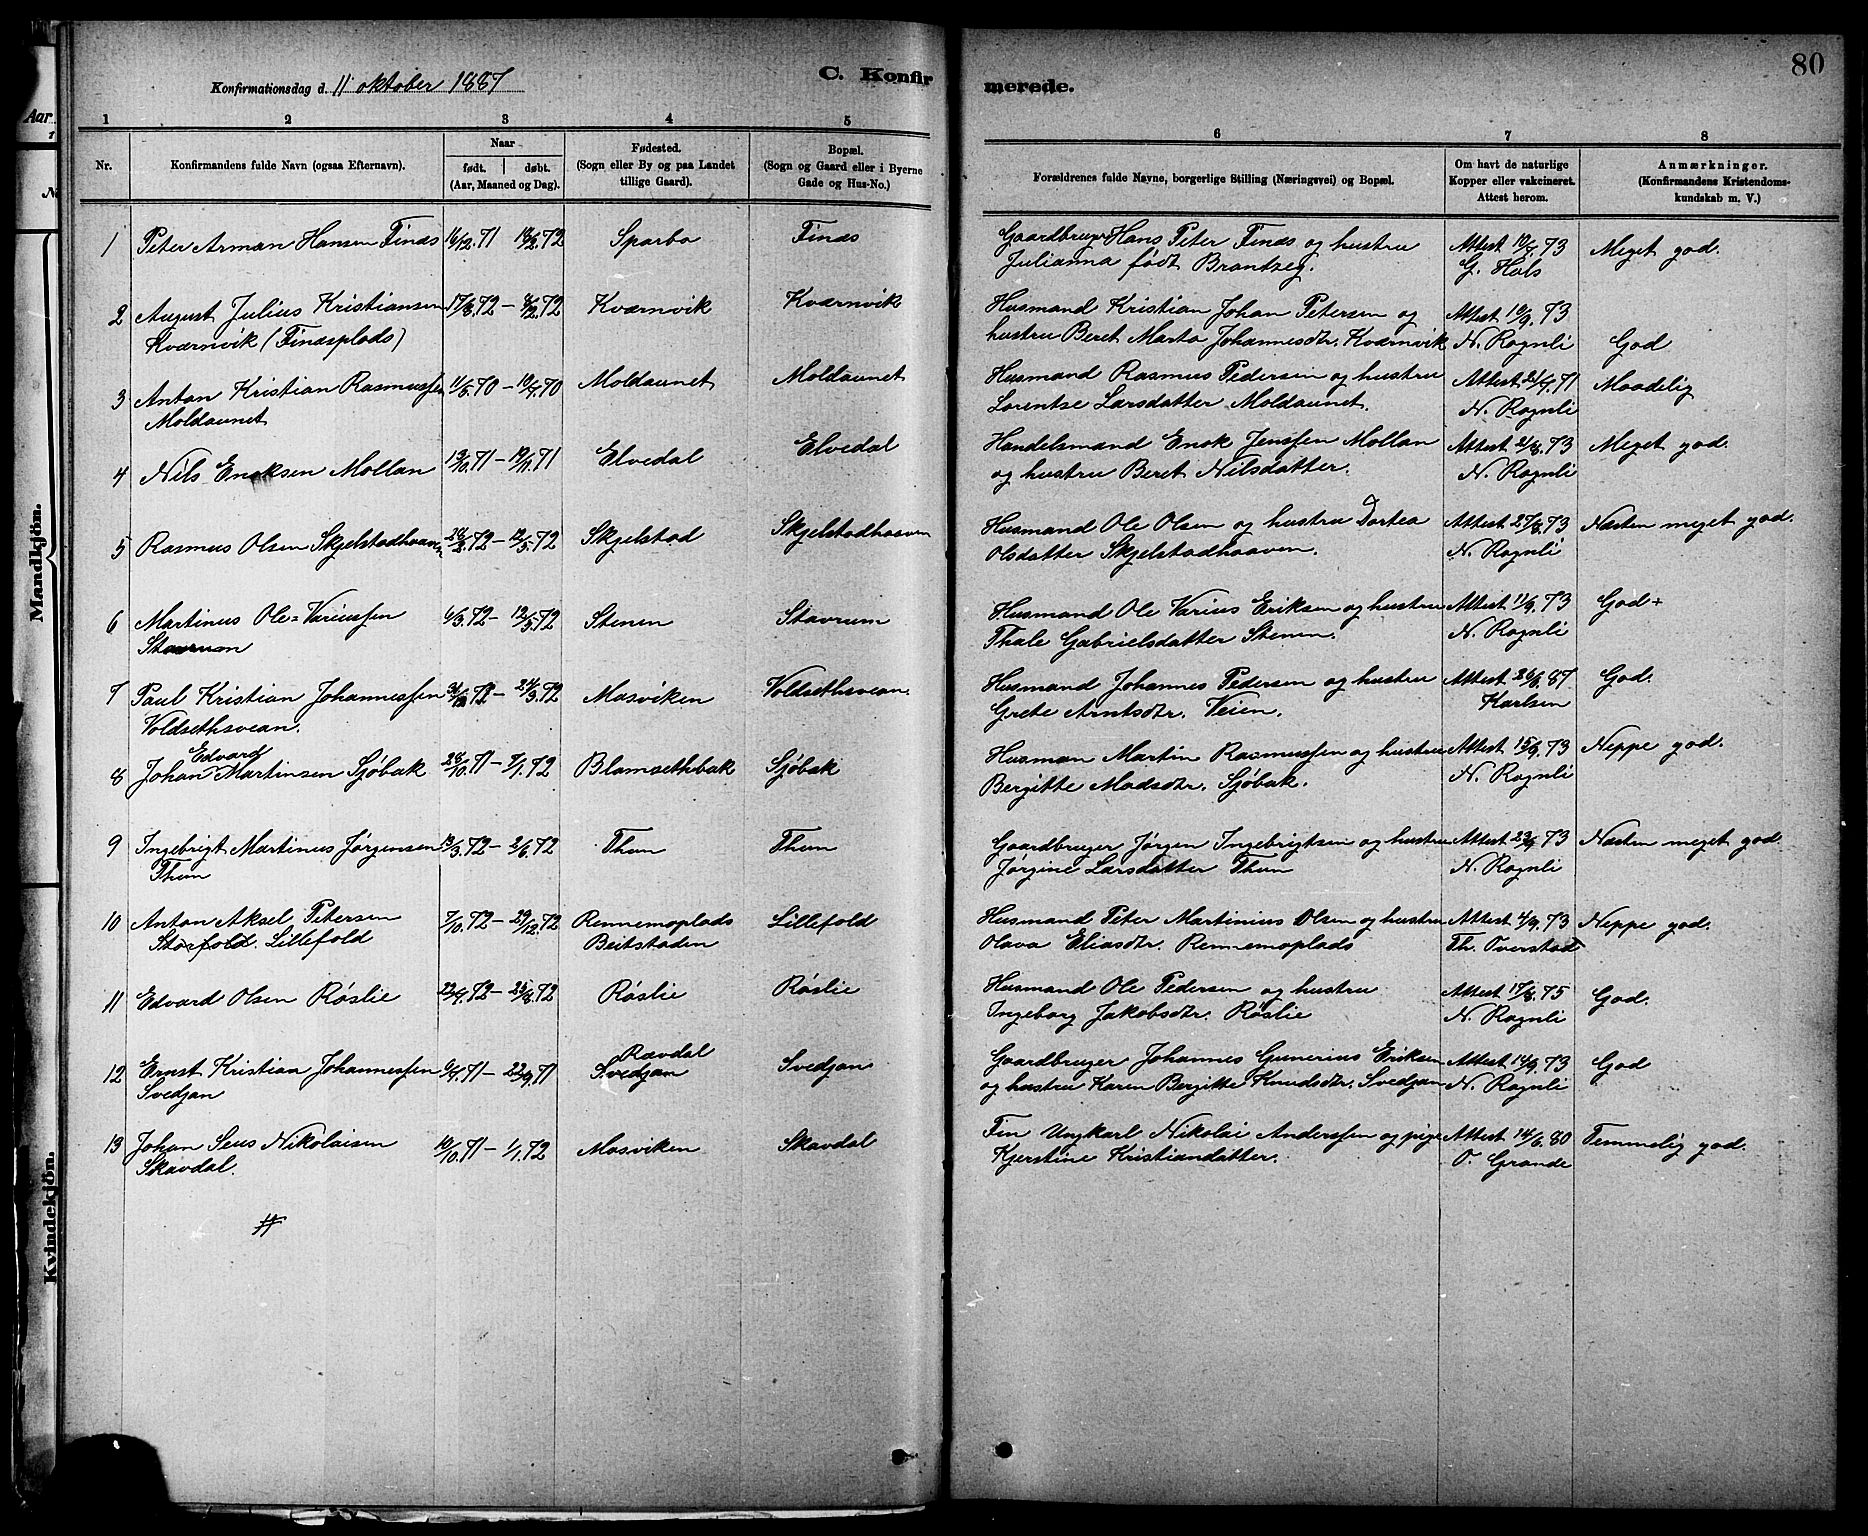 80
Konfirmationsdag d. 11 oktober 1887
C. Konfir
merede.
Aar
1 2 3 4 5 6 7 8
Nr.
Konfirmandens fulde Navn (ogsaa Efternavn).
Naar
født. døbt.
(Aar, Maaned og Dag).
Fødested.
(Sogn eller By og paa Landet
tillige Gaard).
Bopæl.
(Sogn og Gaard eller i Byerne
Gade og Hus-No.)
Forældrenes fulde Navne, borgerlige Stilling (Næringsvei) og Bopæl.
Om havt de naturlige
Kopper eller vakcineret.
Attest herom.
Anmærkninger.
(Konfirmandens Kristendoms-
kundskab m. V.)
Mandkjön.
Kvindekjön.
1 Peter Arman Hansen Finæs 16/12.71 18/2.72 Sparbo Finæs Gaardbruger Hans Peter Finæs og hustru Attest 10/4.73 Meget god.
Julianna født Brantzeg. G. Hals
2 August Julius Kristiansen 17/3.72 – 72 Kværnvik Kværnvik Husmand Kristian Johan Petersen og Attest 19/9.73
Kværnvik (Finæsplads) hustru Beret Marta Johannesdtr. Kværnvik N. Rognli God
3 Anton Kristian Rasmussen 11/3.70 – 19/4.70 Moldaunet Moldaunet Husmand Rasmus Pedersen og hustru Attest 21/4.71 Maadelig
Moldaunet Lorentse Larsdatter Moldaunet. N. Rognli
4 Nils Enoksen Mollan 19/10.71 – 19/11.71 Elvedal Elvedal Handelsmand Enok Jenssen Mollan Attest 21/8.73 Meget god.
og hustru Beret Nilsdatter. N. Rognli
5 Rasmus Olsen Skjelstadhaaven 28/2.72 – 12/5.72 Skjelstad Skjelstadhaaven Husmand Ole Olsen og hustru Dortea Attest 27/8.73 Næsten meget god.
Olsdatter Skjelstadhaaven. N. Rognli
6 Martinus Ole-Variussen 6/3.72 – 12/5.72 Stenen Stavrum Husmand Ole Varius Eriksen og hustru Attest 11/9.73 God +
Stavrum Thale Gabrielsdatter Stenen. N. Rognli
7 Paul Kristian Johannessen 24/3.72 Mosviken Voldsethsvean. Husmand Johannes Pedersen og hustru Attest 26/8.87 God.
Voldsethsvean. Grete Arntsdtr. Veien. Karlsen
Edvard
8 Johan Martinsen Sjøbak 28/10.71 – 7/1.72 Blamsethbak Sjøbak Husman Martin Rasmussen og hustru Attest 15/9.73 Neppe god.
Bergitte Madsdtr. Sjøbak. N. Rognli
9 Ingebrigt Martinus Jørgensen 13/3.72 – 2/6.72 Thun Thun Gaardbruger Jørgen Ingebrigtsen og hustru Attest 73 Næsten meget god
Thun Jørgine Larsdatter Thun N. Rognli
10 Anton Aksel Petersen 7/10.72 – 29/12.72 Rennemoplads Lillefold Husmand Peter Martinius Olsen og hustru Attest 4/9.73 Neppe god.
Storfold. Lillefold Beitstaden Olava Eliasdtr. Rennemoplads Th. Overstad
11 Edvard Olsen Røslie 22/4.72 – 25/8.72 Røslie Røslie Husmand Ole Pedersen og hustru Attest 17/8.75 God.
Ingeborg Jakobsdtr. Røslie N. Rognli
Rævdal
12 Ernst Kristian Johannessen 9/4.71 – 22/9.71 Svedjan Svedjan Gaardbruger Johannes Gunerius Eriksen Attest 14/9.73 God
Svedjan og hustru Karen Bergitte Knudsdtr. Svedjan N. Rognli
13 Johan Seus Nikolaisen 10/10.71 – 1/1.72 Mosviken Skavdal Fin Ungkarl Nikolai Anderssen og pige Attest 14/6.80 Temmelig god.
Skavdal. Kjerstine Kristiandatter. O. Grande